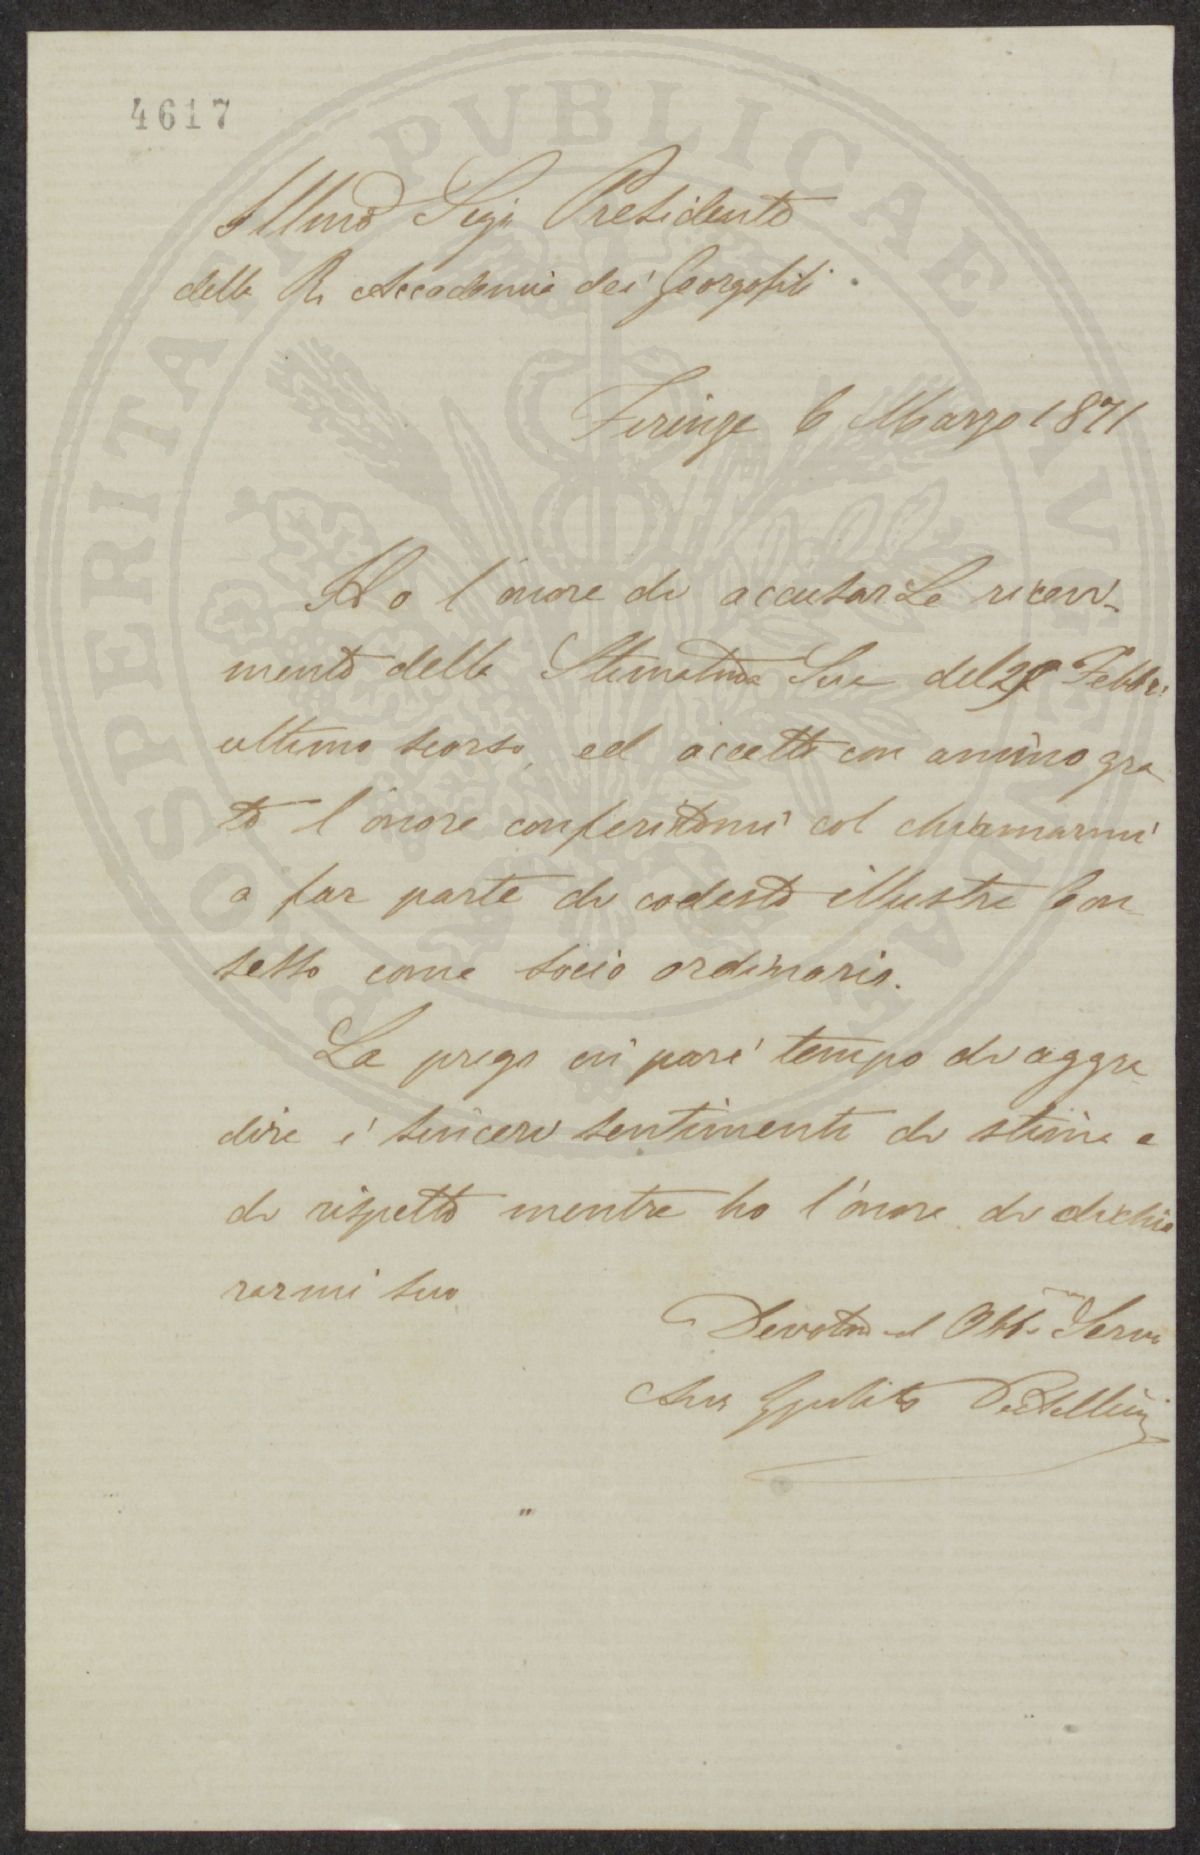 4617
PROSPERITATI PVBLICAE AVGENDAE
Illmo Sigr Presidente
della R. Accademia dei Georgofili
Firenze 6 Marzo 1871
Ho l'onore di accusarLe ricevi-
mento della Stimatma Sua del Febbr:
ultimo scorso, ed accetto con animo gra
to l'onore conferitomi col chiamarmi
a far parte di codesto illustre Con
sesso come socio ordinario.
La prego in pari tempo di aggra-
dire i sinceri sentimenti di stima e
di rispetto mentre ho l'onore di dichia
rarmi suo
Devotmo ed Obb.mo Servo
Ippolito Pestellini